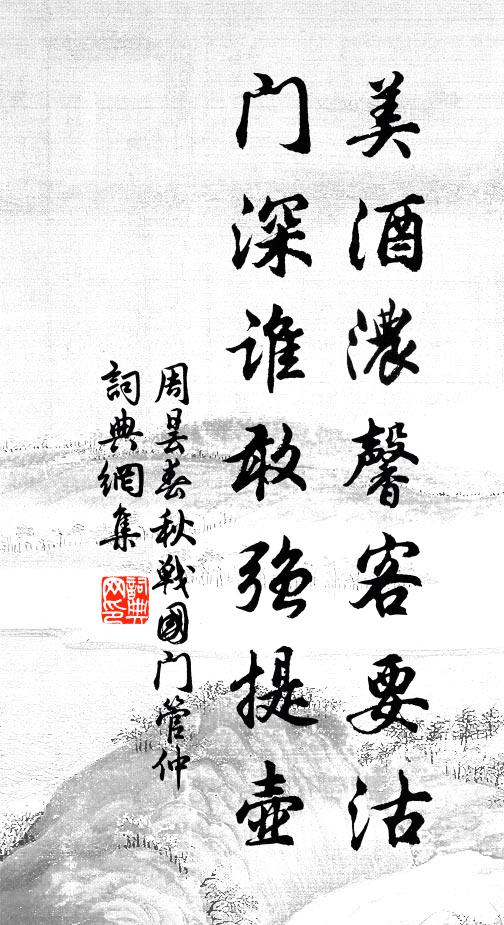 美酒濃馨客要沽
门深谁敢强提壺
周昙春秋戦國门管仲
詞典網集
詞典网印